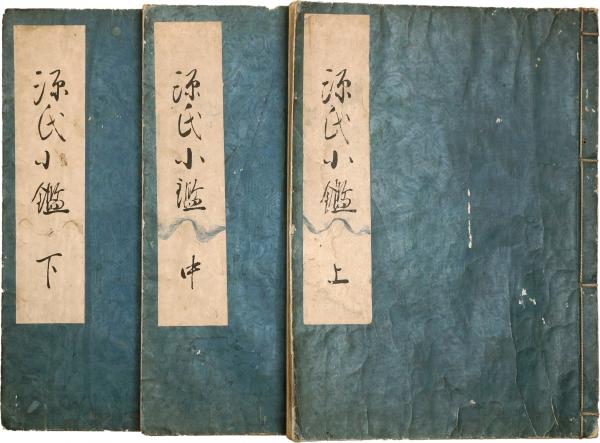 源氏小鑑 上
源氏小鑑 中
源氏小鑑 下